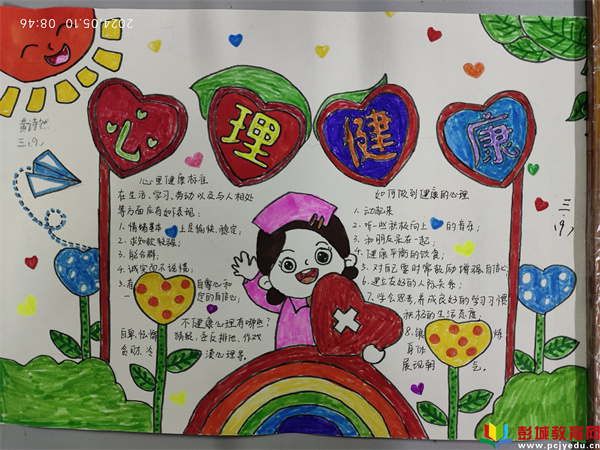 2024.05.10 08:46
心理健康
三(9)
三(9)
心里健康标准
在生活、学习、劳动以及与人相处
等方面应有如下表现:
1.情绪基本上是愉快、稳定;
2.求知欲较强;
3.能合群;
4.诚实而不说慌;
5.有自尊心和
一定的自信心;
不健康心理有哪些?
自卑、忧郁
如何做到健康的心理
1.动起来
2.听一些积极向上的音乐;
3.和朋友呆在一起;
4.健康平衡的饮食;
5.对自己要时常鼓励增强自信心;
6.建立友好的人际关系;
7.学会思考,养成良好的学习习惯
积极的生活态度;
8.锻炼
身体
展现朝
彭城教育网
www.pcjyedu.cn